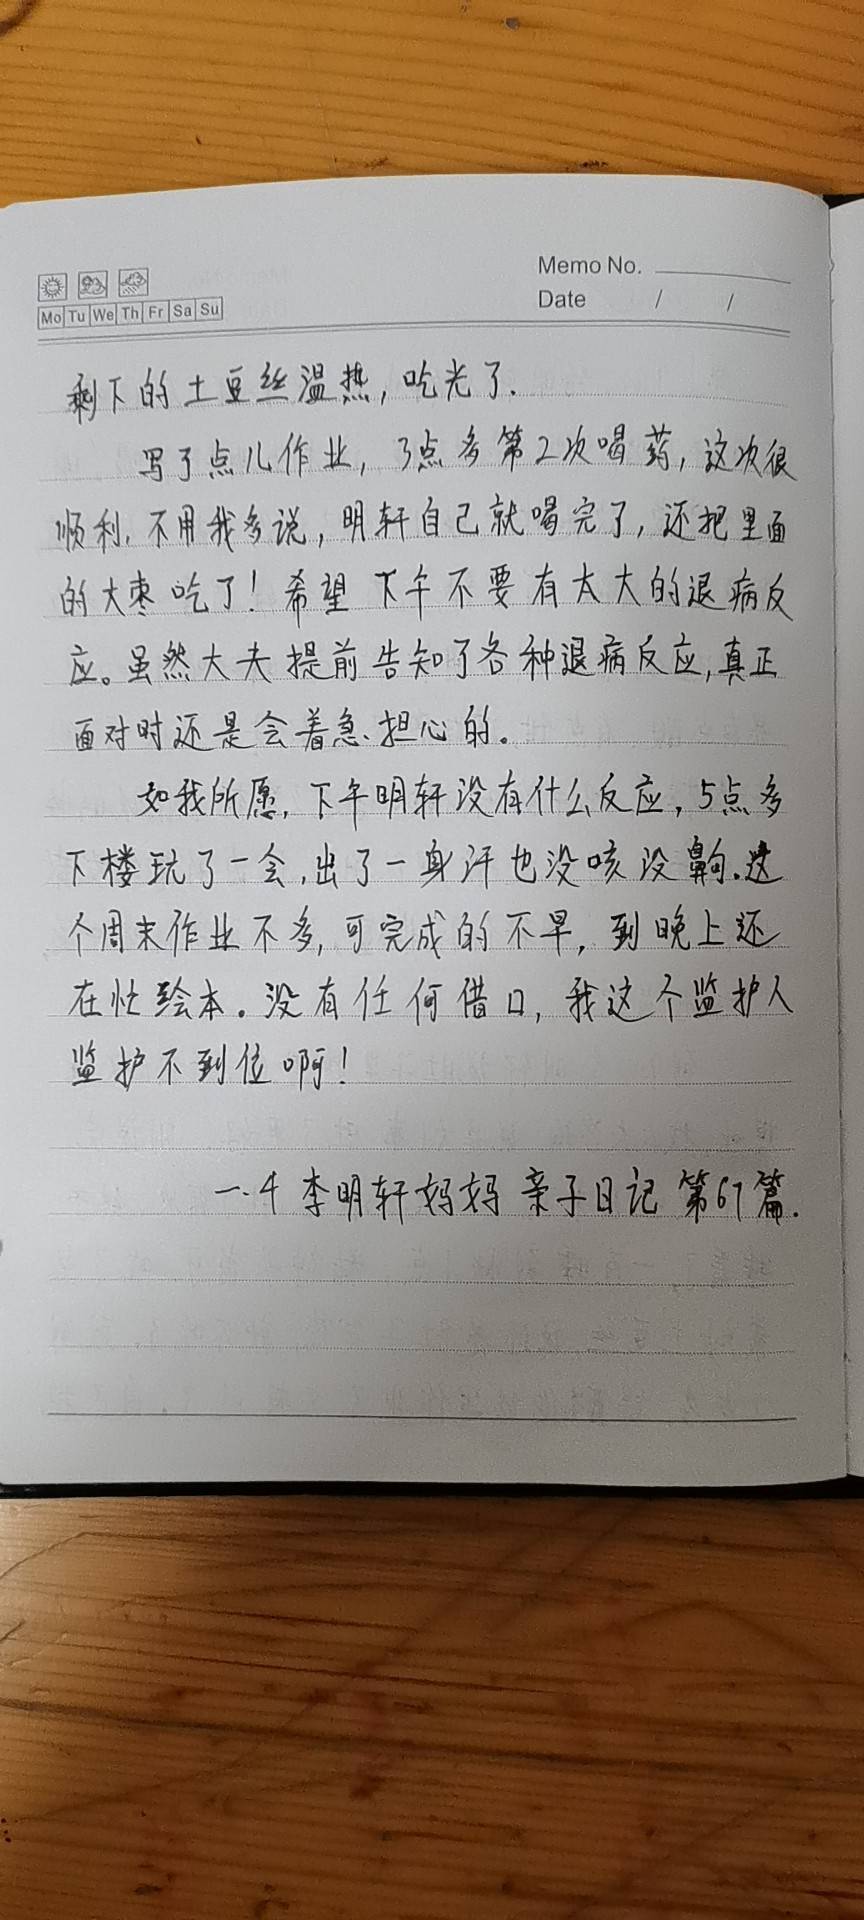 Memo No.
Date / /
Mo Tu We Th Fr Sa Su
剩下的土豆丝温热,吃光了.
写了点儿作业,3点多第2次喝药,这次很
顺利.不用我多说,明轩自己就喝完了,还把里面
的大枣吃了!希望下午不要有太大的退病反
应。虽然大夫提前告知了各种退病反应,真正
面对时还是会着急、担心的。
如我所愿,下午明轩没有什么反应,5点多
下楼玩了一会,出了一身汗也没咳没齁.这
个周末作业不多,可完成的不早,到晚上还
在忙绘本。没有任何借口,我这个监护人
监护不到位啊!
一.4 李明轩妈妈 亲子日记 第67篇.